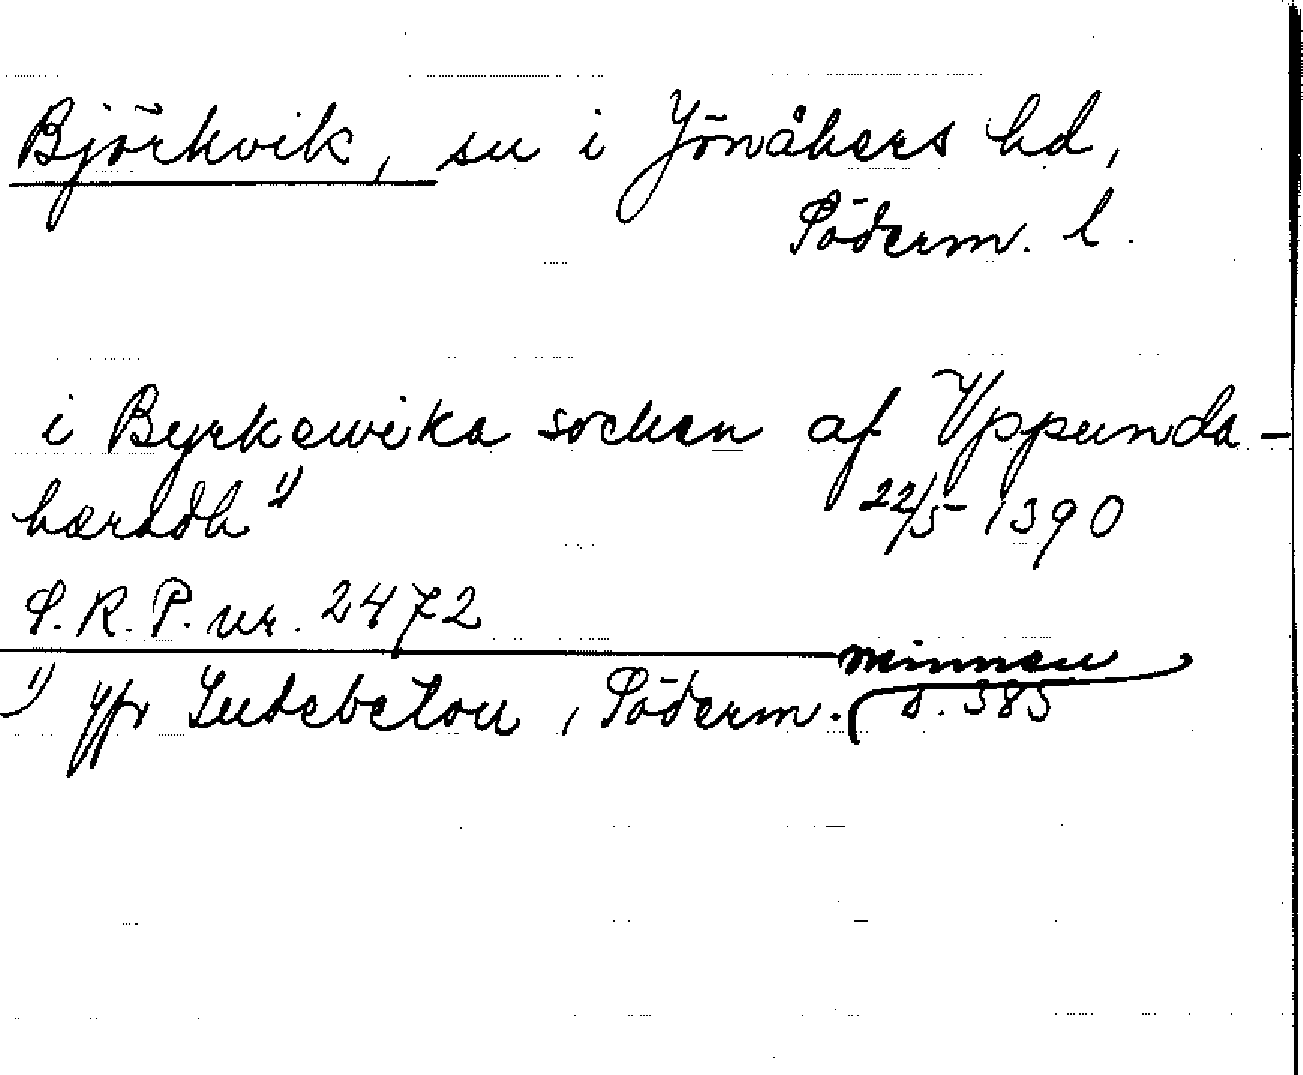 Björkvik, sn i Jönåkers hd,
Söderm. l.
i Byrkewika socken af Vppunda-
hæradh 1)
22/5 1390
S.R.P. nr. 2472
1) jfr Sudebeton, Söderm. minnen
s. 385